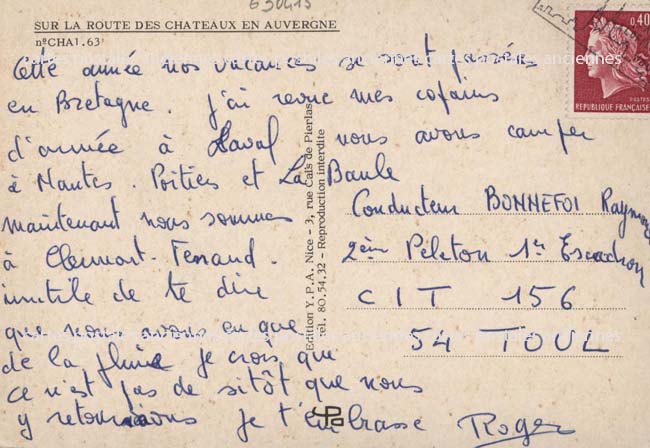 630415
SUR LA ROUTE DES CHATEAUX EN AUVERGNE
nºCHA1.63
Cette année nos vacances se sont passées
en Bretagne. J'ai revue mes copains
d'armée à Laval nous avons camper
à Nantes. Poitiers et La Baule
maintenant nous sommes
à Clermont-Ferrand.
inutile de te dire
que nous avons eu que
de la pluie je crois que
ce n'est pas de sitôt que nous
y retournerons je t'embrasse Roger
Edition Y.P.A. Nice - 3, rue Caïs de Pierlas
Tél: 80.54.32 - Reproduction interdite
0,40
POSTES
REPUBLIQUE FRANÇAISE
Conducteur BONNEFOI Raymond
2èm Peleton 1er Escadron
CIT 156
54 TOUL